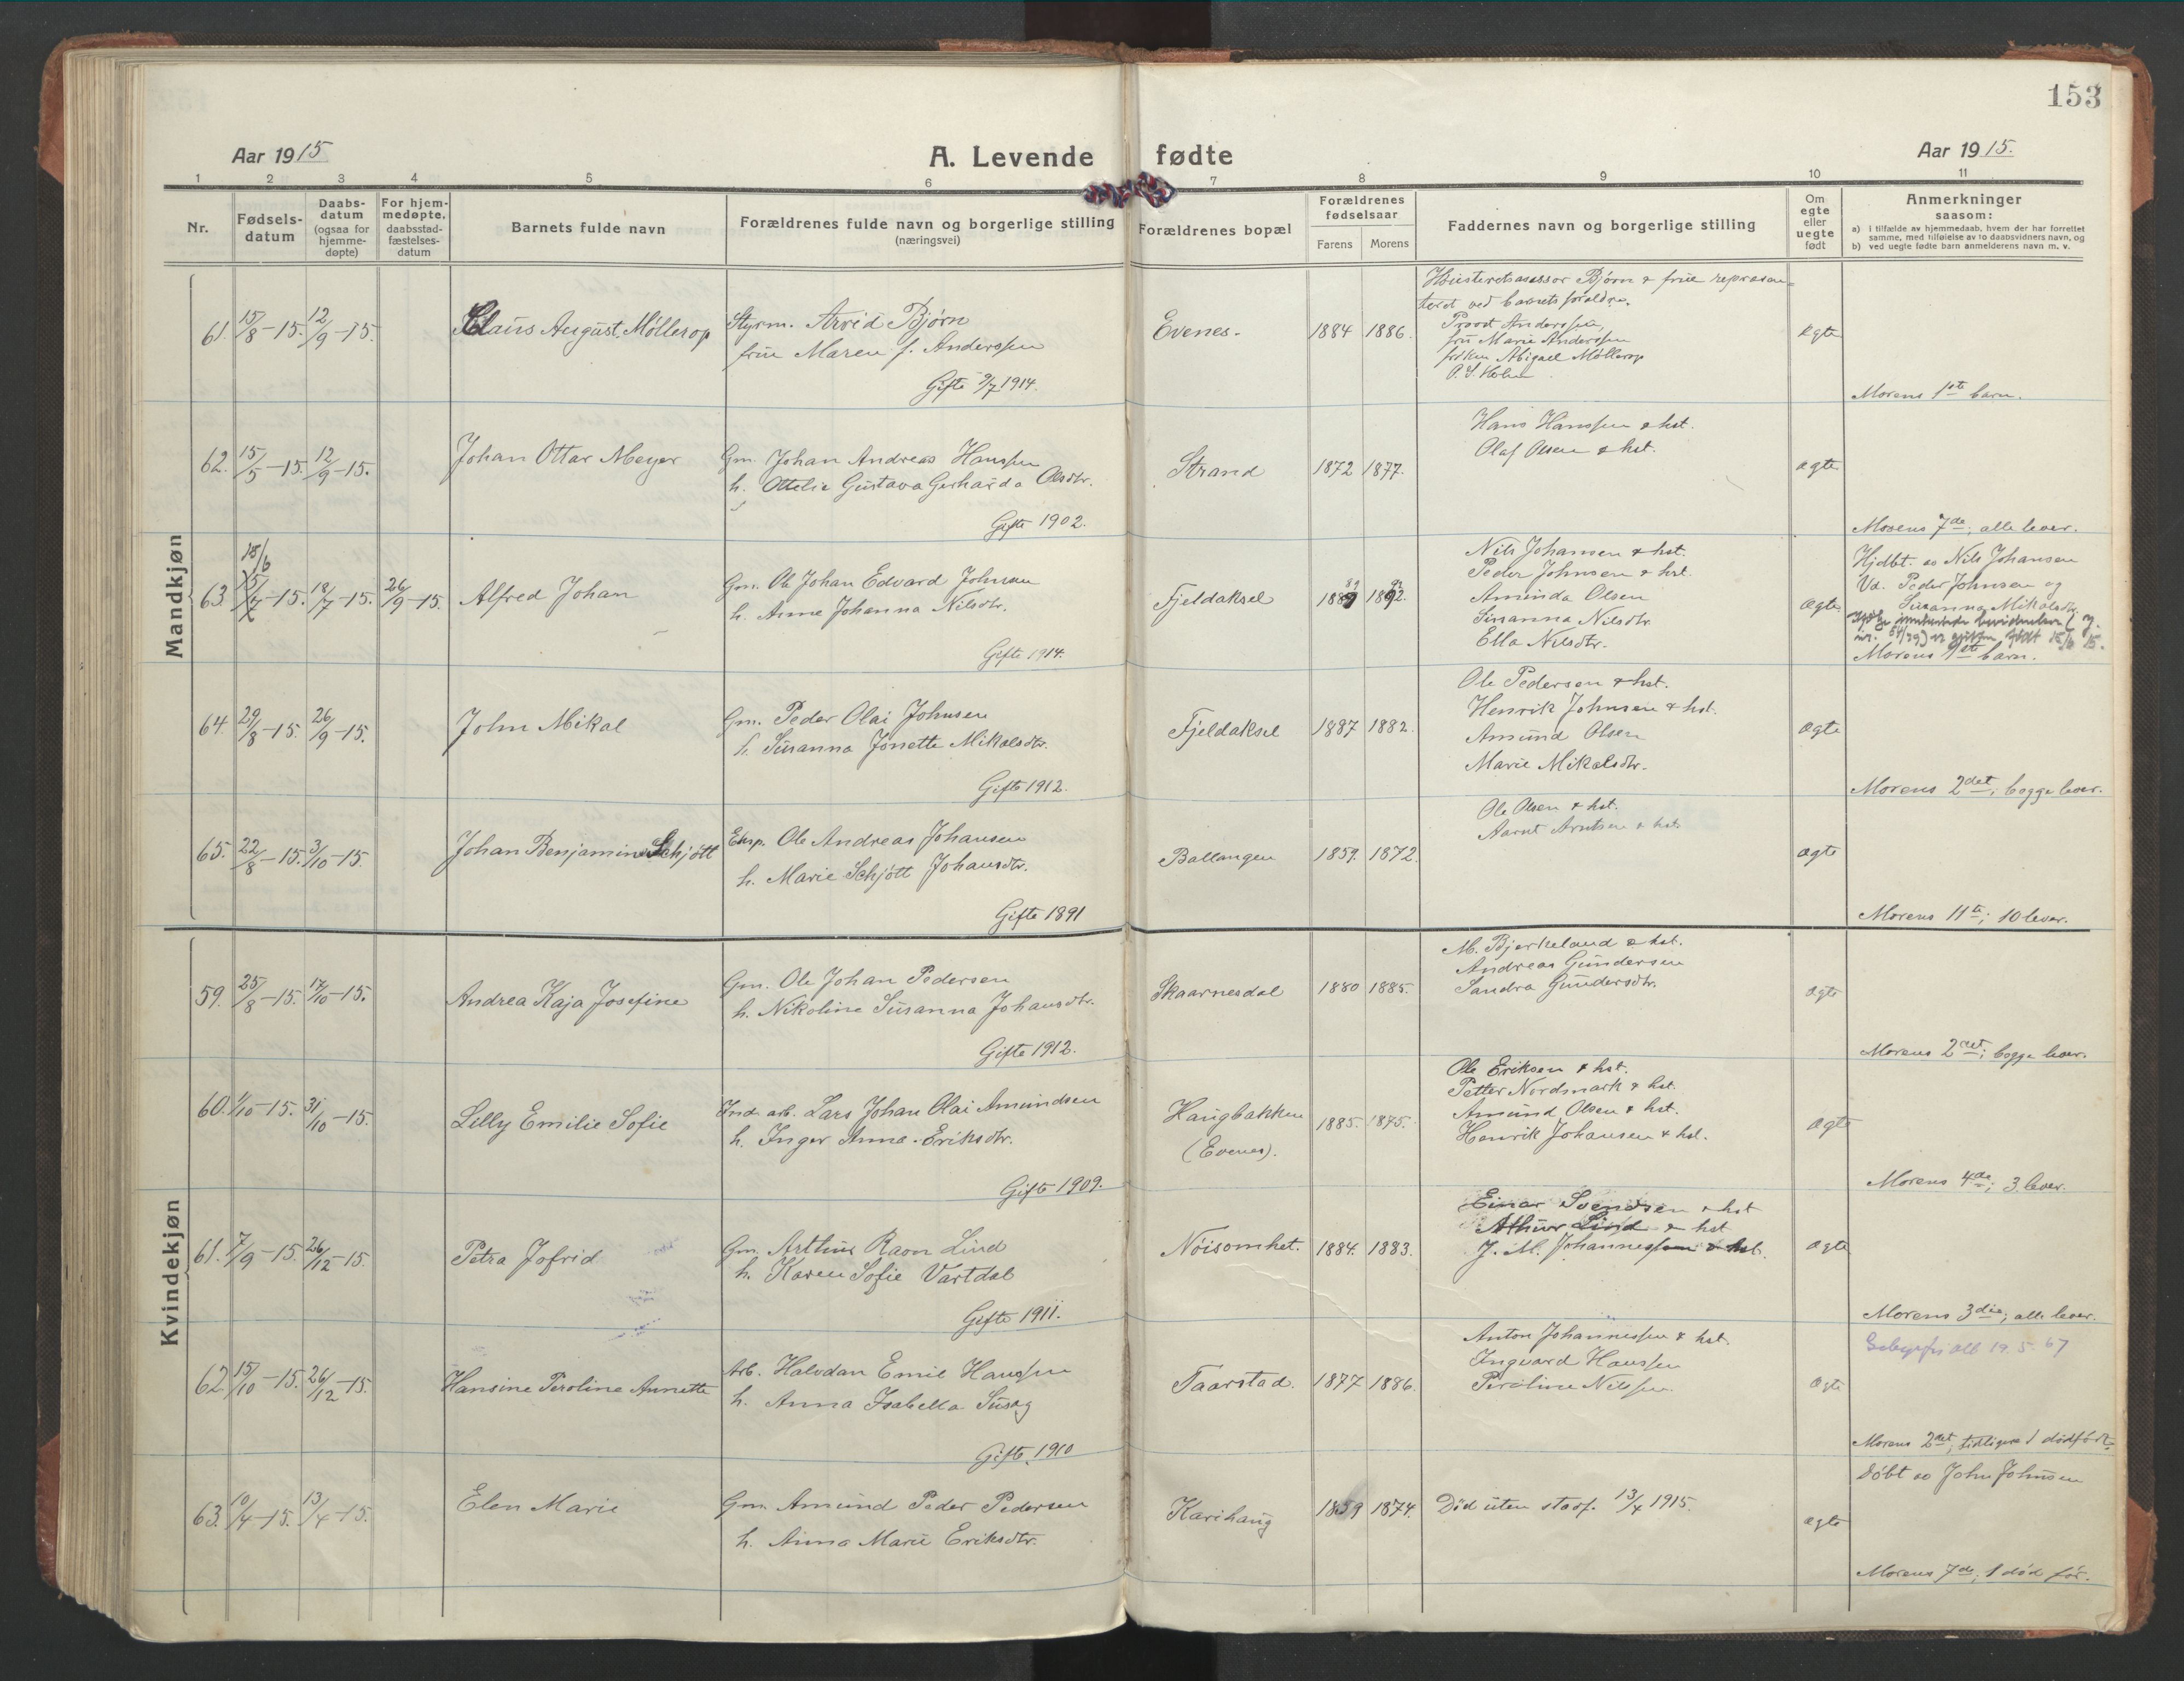 153
Aar 1915
A. Levende fødte
Aar 1915.
1 2 3 4 5 6 7 8 9 10 11
Nr.
Fødsels-
datum
Daabs-
datum
(ogsaa for
hjemme-
døpte)
For hjem-
medøpte,
daabsstad-
fæstelses-
datum
Barnets fulde navn
Forældrenes fulde navn og borgerlige stilling
(næringsvei)
Forældrenes bopæl
Forældrenes
fødselsaar
Farens Morens
Faddernes navn og borgerlige stilling
Om
egte
eller
uegte
født
Anmerkninger
saasom:
a) i tilfælde av hjemmedaab, hvem der har forrettet
samme, med tilføielse av to daabsvidners navn, og
b) ved uegte fødte barn anmelderens navn m. v.
Mandkjøn
61. 15/8-15. 12/9-15.
Claus August Møllerop
Styrm. Arvid Bjørn
frue Maren f. Anderssen
Gifte 9/7 1914.
Evenes.
1884 1886.
Bjørn & frue repræsen-
teret ved barnets forældre.
Provst Anderssen,
fru Marie Anderssen
frøken Abigael Møllerop
P. S. Holm
egte
Morens 1ste barn.
62. 15/5-15. 12/9-15.
Johan Ottar Meyer
Gm. Johan Andreas Hanssen
h. Ottelie Gustava Gerharda Olsdtr.
Gifte 1902.
Strand
1872 1877.
Hans Hanssen & hst.
Olaf Olsen & hst.
ægte
Morens 7de; alle lever.
18/6
63. 5/7-15. 18/7-15. 26/9-15.
Alfred Johan
Gm. Ole Johan Edvard Johnsen
h. Anne Johanna Nilsdtr.
Gifte 1914.
Fjeldaksel
1889 1892.
Nils Johansen & hst.
Peder Johnsen & hst.
Aminda Olsen
Susanna Nilsdtr.
Ella Nilsdtr.
ægte
Hjdbt. av Nils Johansen
Va. Peder Johnsen og
Susanna Mikalsdtr.
født 15/6 15.
Morens 1ste barn.
64. 29/8-15. 26/9-15.
John Mikal
Gm. Peder Olai Johnsen
h. Susanna Jonette Mikalsdtr.
Gifte 1912.
Fjeldaksel
1887 1882.
Ole Pedersen & hst.
Henrik Johnsen & hst.
Amund Olsen
Marie Mikalsdtr.
ægte
Morens 2det; begge lever.
65. 22/8-15. 3/10-15.
Johan Benjamin Schjött
Eksp. Ole Andreas Johansen
h. Marie Schjött Johansdtr.
Gifte 1891
Ballangen
1859. 1872.
Ole Olsen & hst.
Aarnt Arntsen & hst.
ægte
Morens 11te; 10 lever.
Kvindekjøn
59. 25/8-15. 17/10-15.
Andrea Kaja Josefine
Gm. Ole Johan Pedersen
h. Nikoline Susanna Johansdtr.
Gifte 1912.
Skaarnesdal
1880 1885.
M. Bjerkeland & hst.
Andreas Gundersen
Sandra Gundersdtr.
ægte
Morens 2det; begge lever.
60. 1/10-15. 31/10-15.
Lilly Emilie Sofie
Ind. arb. Lars Johan Olai Amundsen
h. Inger Anna Eriksdtr.
Gifte 1909.
Haugbakken
(Evenes).
1885. 1875.
Ole Eriksen & hst.
Petter Nordmark & hst.
Amund Olsen & hst.
Henrik Johansen & hst.
ægte
Morens 4de; 3 lever.
61. 7/9-15. 26/12-15.
Petra Jofrid
Gm. Arthur Ravn Lind
h. Karen Sofie Vartdal
Gifte 1911.
Nöisomhet.
1884. 1883.
Einar Svendsen & hst
Athur Lind & hst
J. M. Johannessen & hst.
ægte
Morens 3die; alle lever.
62. 15/10-15. 26/12-15.
Hansine Peroline Annette
Arb. Halvdan Emil Hanssen
h. Anna Isabella Susag
Gifte 1910
Taarstad.
1877 1886.
Anton Johannessen & hst.
Ingvard Hanssen
Peroline Nilssen.
ægte
19. 5. 67
Morens 2det; tidligere 1 dödfödt.
63. 10/4-15. 13/4-15.
Elen Marie
Gm. Amund Peder Pedersen
h. Anna Marie Eriksdtr.
Karihaug
1859 1874.
Död uten stadf. 13/4 1915.
ægte
Döbt av John Johnsen
Morens 7de; 1 död før.